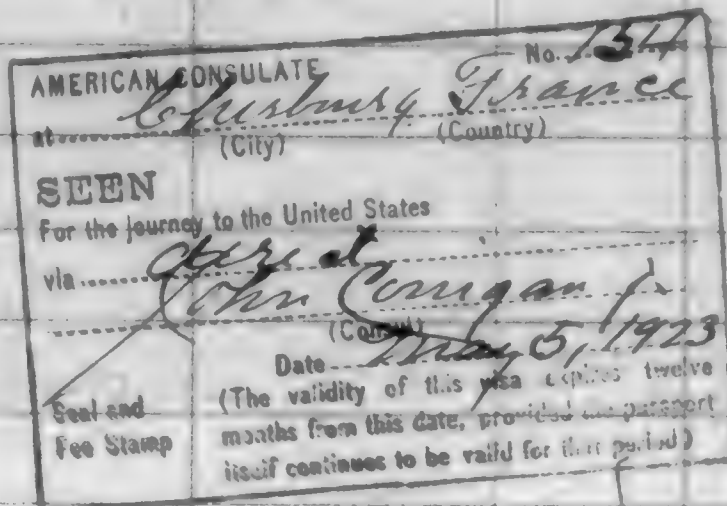 AMERICAN CONSULATE No. 134
at Cherburg France
(City) (Country)
SEEN
For the journey to the United States
via direct
John Corrigan Jr
(Consul)
Date May 5, 1923
(The validity of this visa expires twelve
months from this date, provided the passport
itself continues to be valid for that period)
Seal and
Fee Stamp